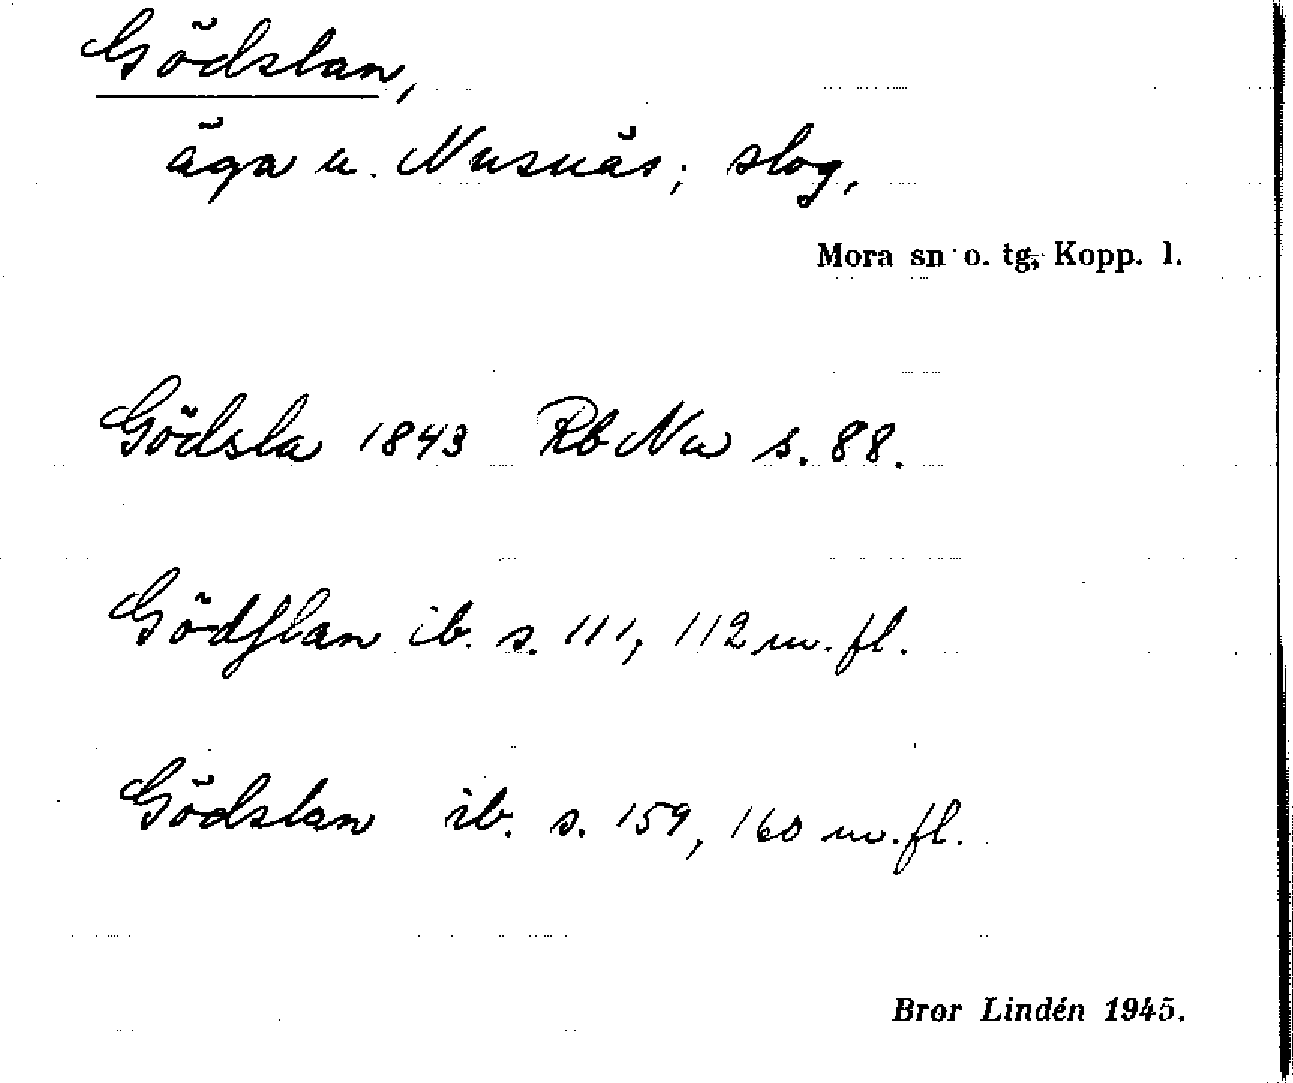 Gödslan,
äga u. Nusnäs; slog,
Mora sn o. tg, Kopp. l.
Gödsla 1843 Rb Nu s. 88.
Gödſlan ib. s. 111, 112 m. fl.
Gödslan ib. s. 159, 160 m. fl.
Bror Lindén 1945.